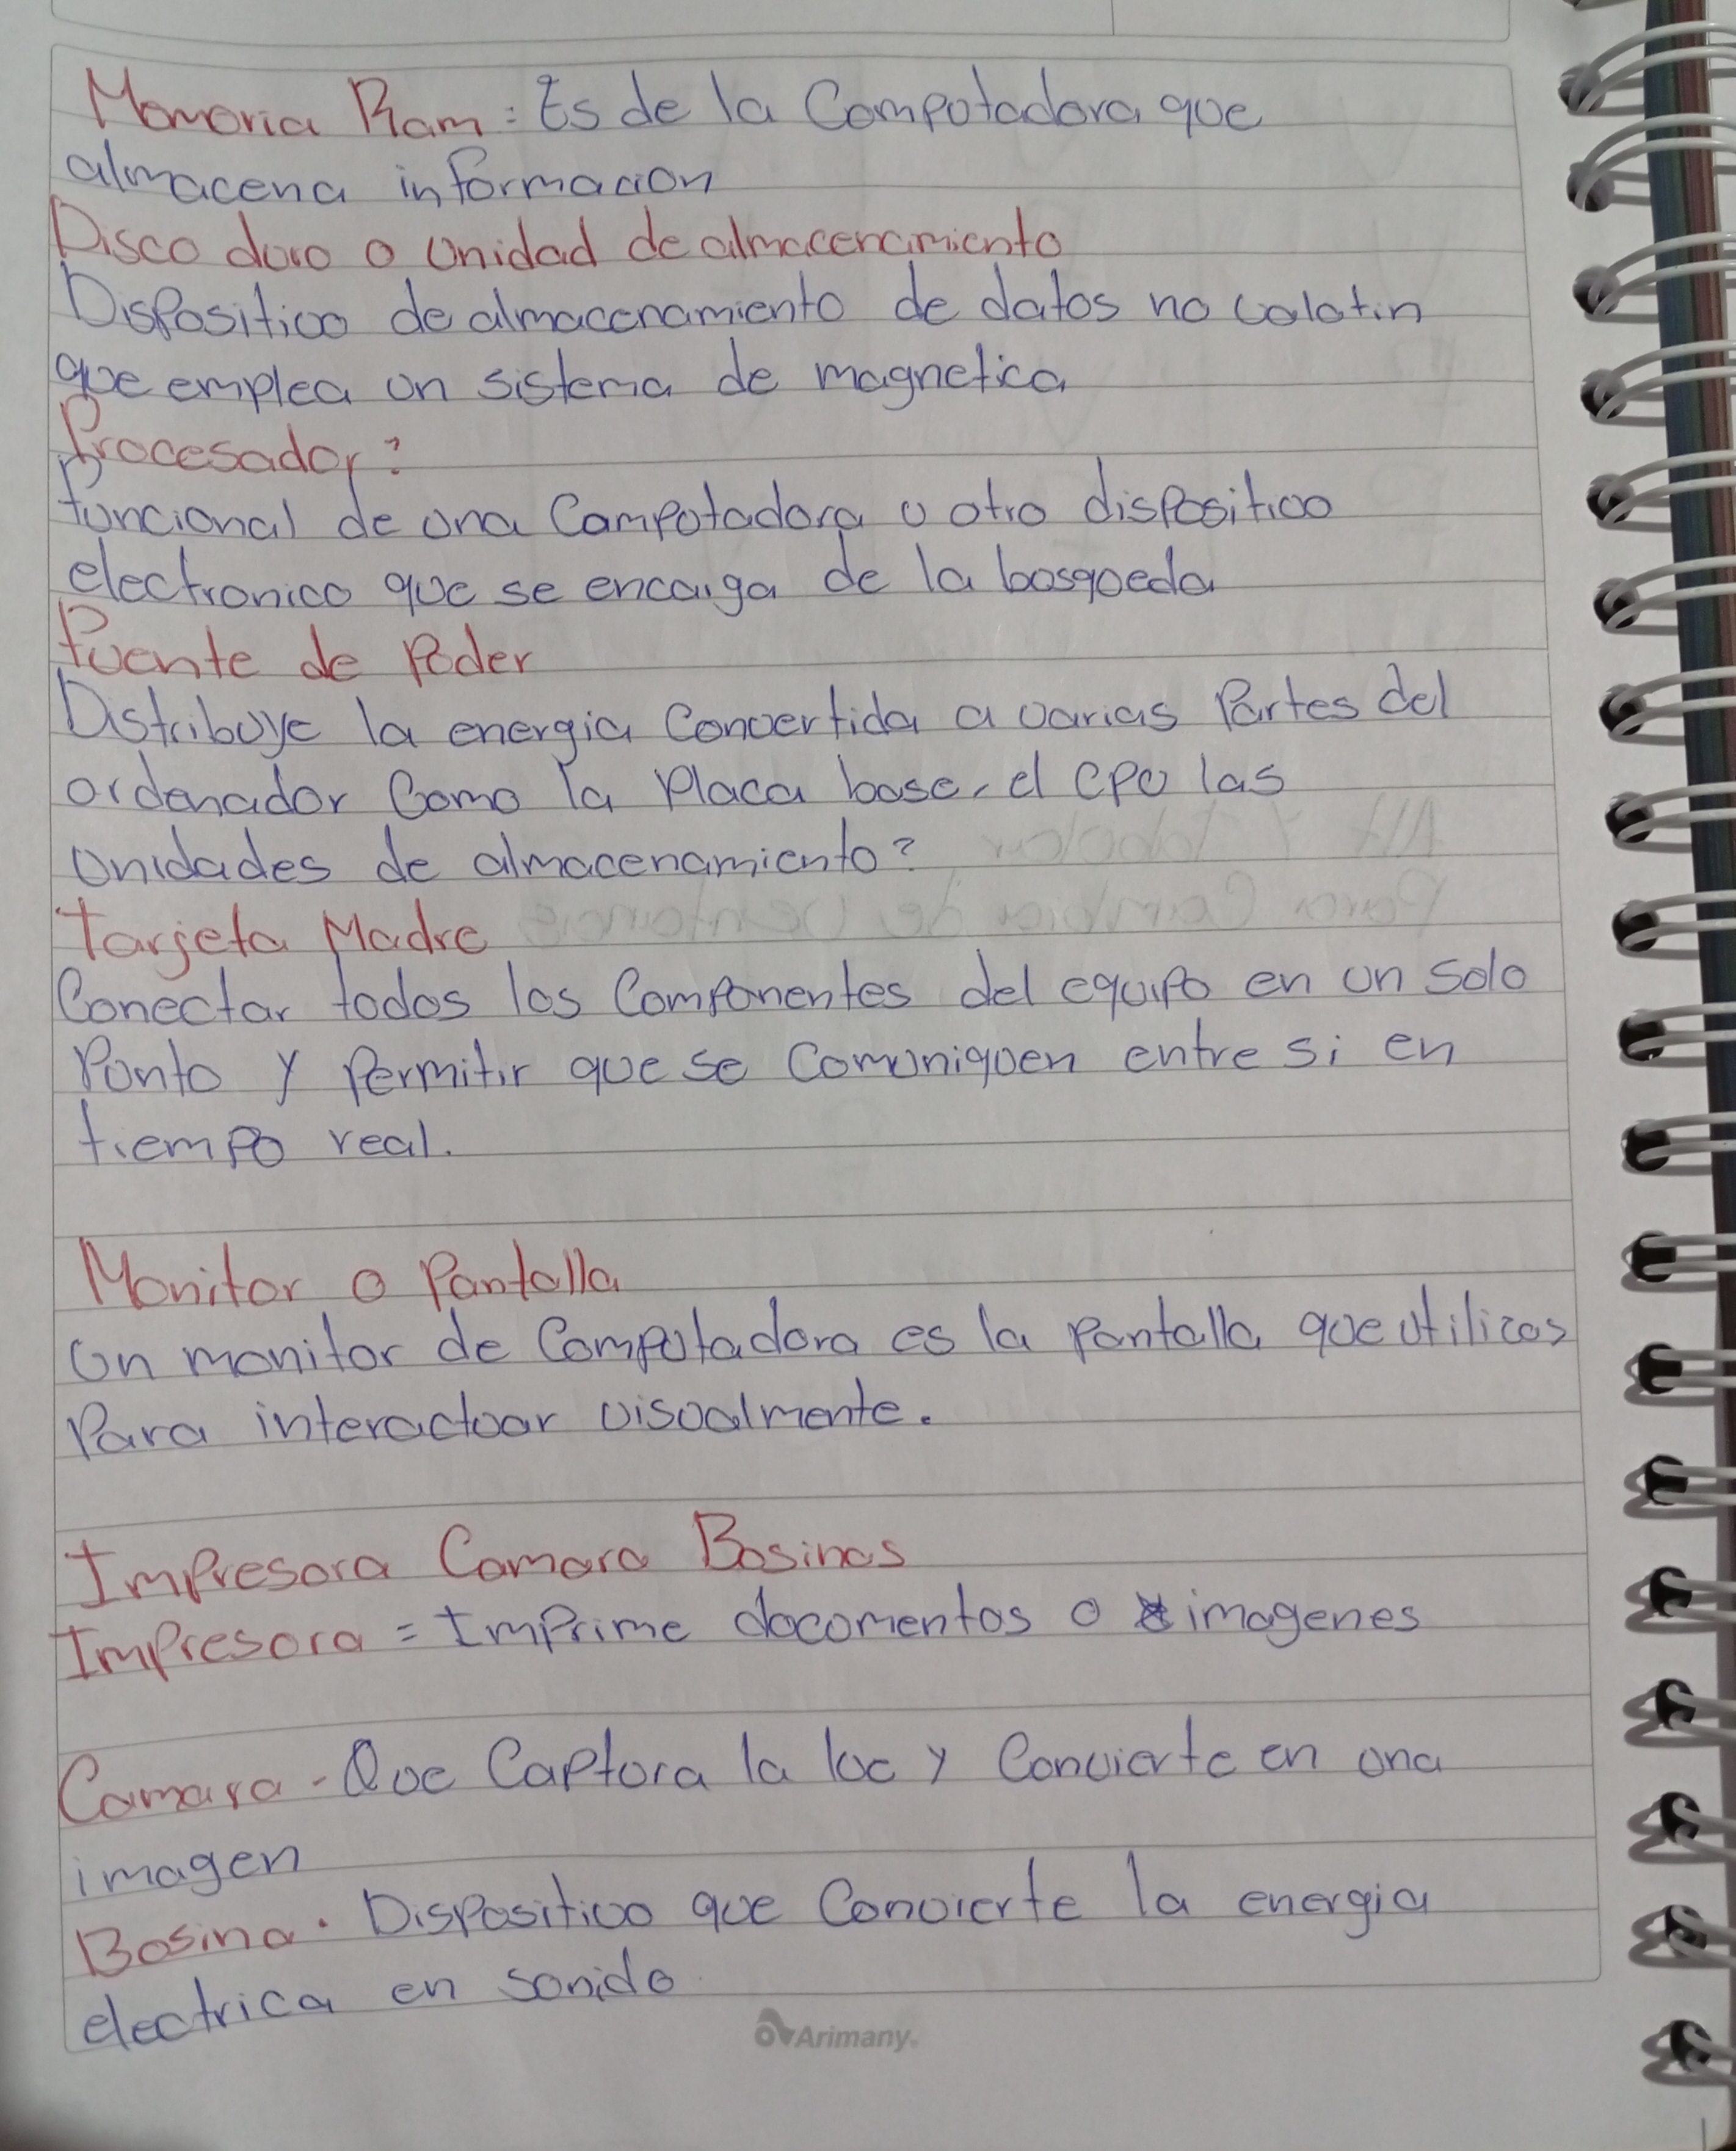 Memoria Ram: Es de la Computadora que
almacena informacion
Disco duro o Unidad de almacenamiento
Dispositivo de almacenamiento de datos no volatin
que emplea un sistema de magnetica
Procesador?
funcional de una Computadora u otro dispositivo
electronico que se encarga de la busqueda
Fuente de Poder
Distribuye la energia Convertida a varias Partes del
ordenador Como la Placa base, el CPU las
Unidades de almacenamiento?
Tarjeta Madre
Conectar todos los Componentes del equipo en un solo
Punto y Permitir que se Comuniquen entre si en
tiempo real.
Monitor o Pantalla
Un monitor de Computadora es la Pantalla que utilizas
Para interactuar visualmente.
Impresora Camara Bosinas
Impresora = Imprime documentos o imagenes
Camara - Que Captura la luc y Convierte en una
imagen
Bosina. Dispositivo que Convierte la energia
electrica en sonido
Arimany.